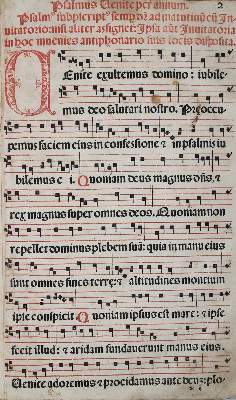 Psalmus Uenite per annum.
2
Psalmꝰ subscriptꝰ semper ad matutinũ cũ In
uitatorio: nisi aliter assignet: Ipsa aũt Inuitatoria
in hoc inuenies antiphonario suis locis disposita.
Uenite exultemus domino: iubile
mus deo salutari nostro. Preoccu
pemus faciem eius in confessione ⁊ in psalmis iu
bilemus ei. Quoniam deus magnus dñs, ⁊
rex magnus super omnes deos. Quoniam non
repellet dominus plebem suã: quia in manu eius
sunt omnes fines terrę: ⁊ altitudines montium
ipse conspicit Quoniam ipsius est mare: ⁊ ipse
fecit illud: ⁊ aridam fundauerunt manus eius.
Uenite adoremus ⁊ procidamus ante deuʒ: plo